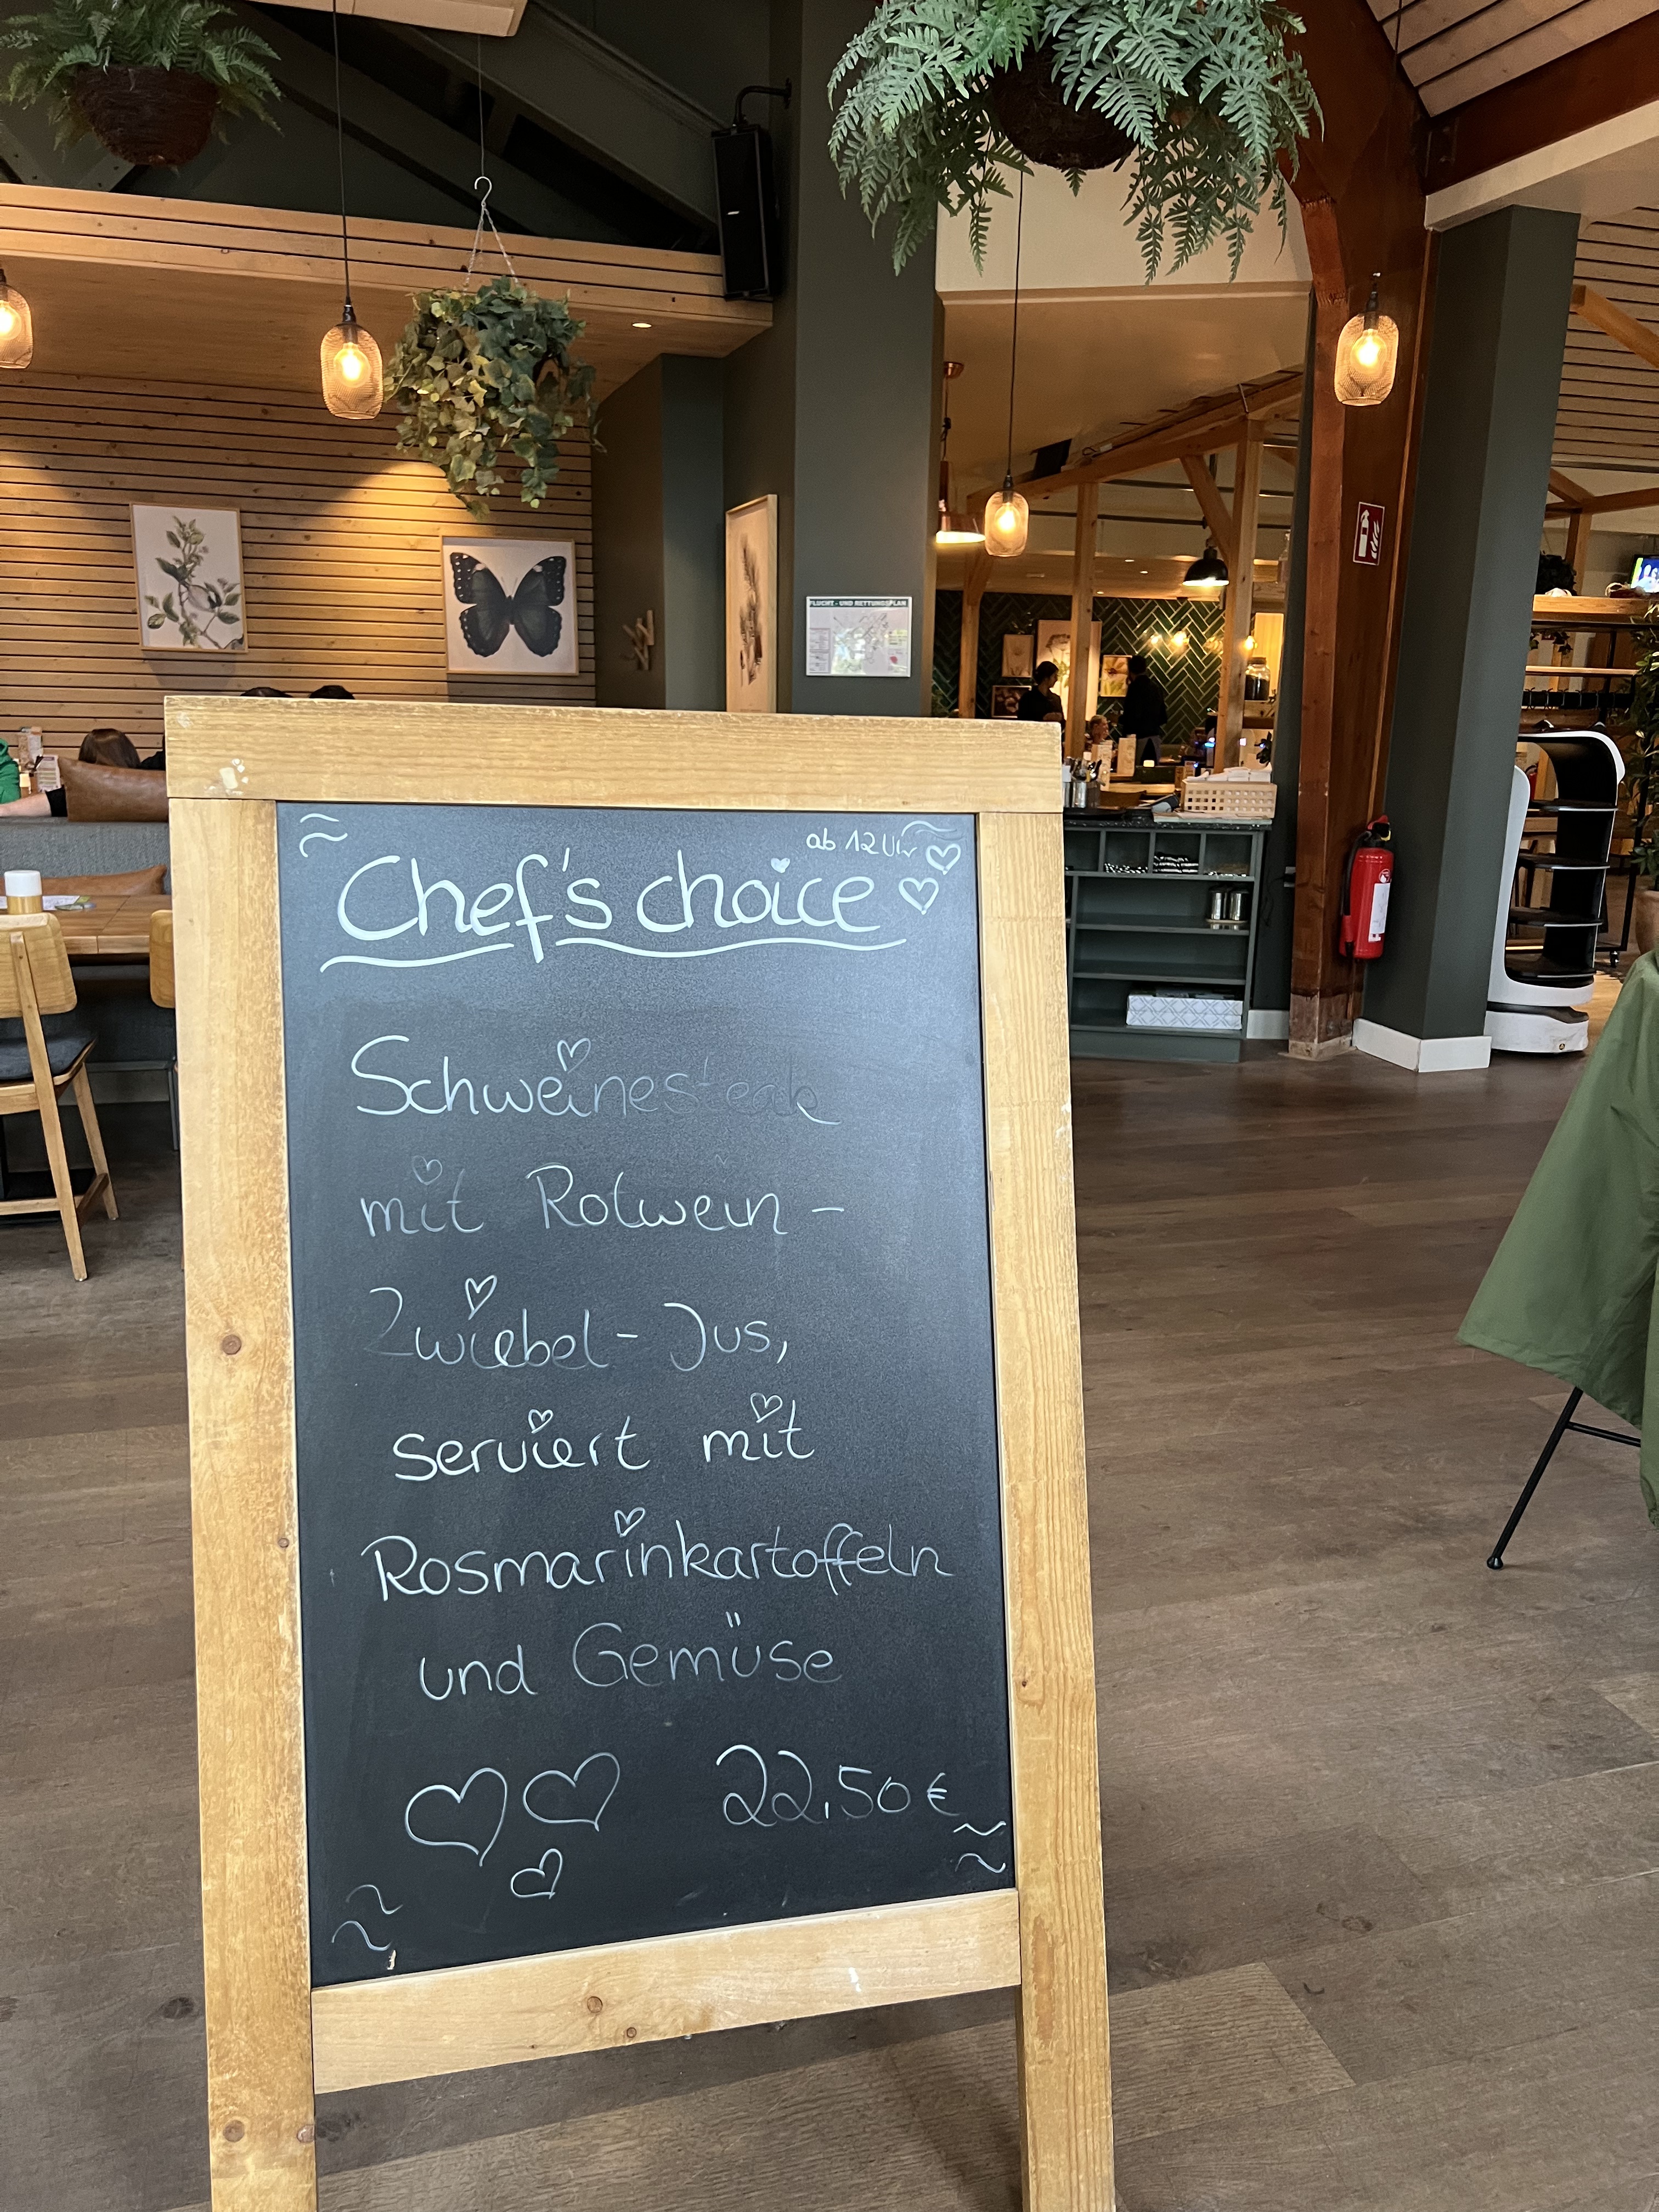 FLUCHT- UND RETTUNGSPLAN
ab 12 Uhr
Chef's choice
Schweinesteak
mit Rotwein-
Zwiebel-Jus,
serviert mit
Rosmarinkartoffeln
und Gemüse
22,50 €